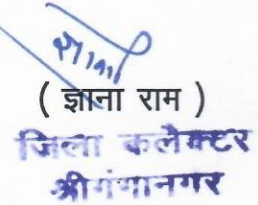 ( ज्ञाना राम )
जिला कलैक्टर
श्रीगंगानगर